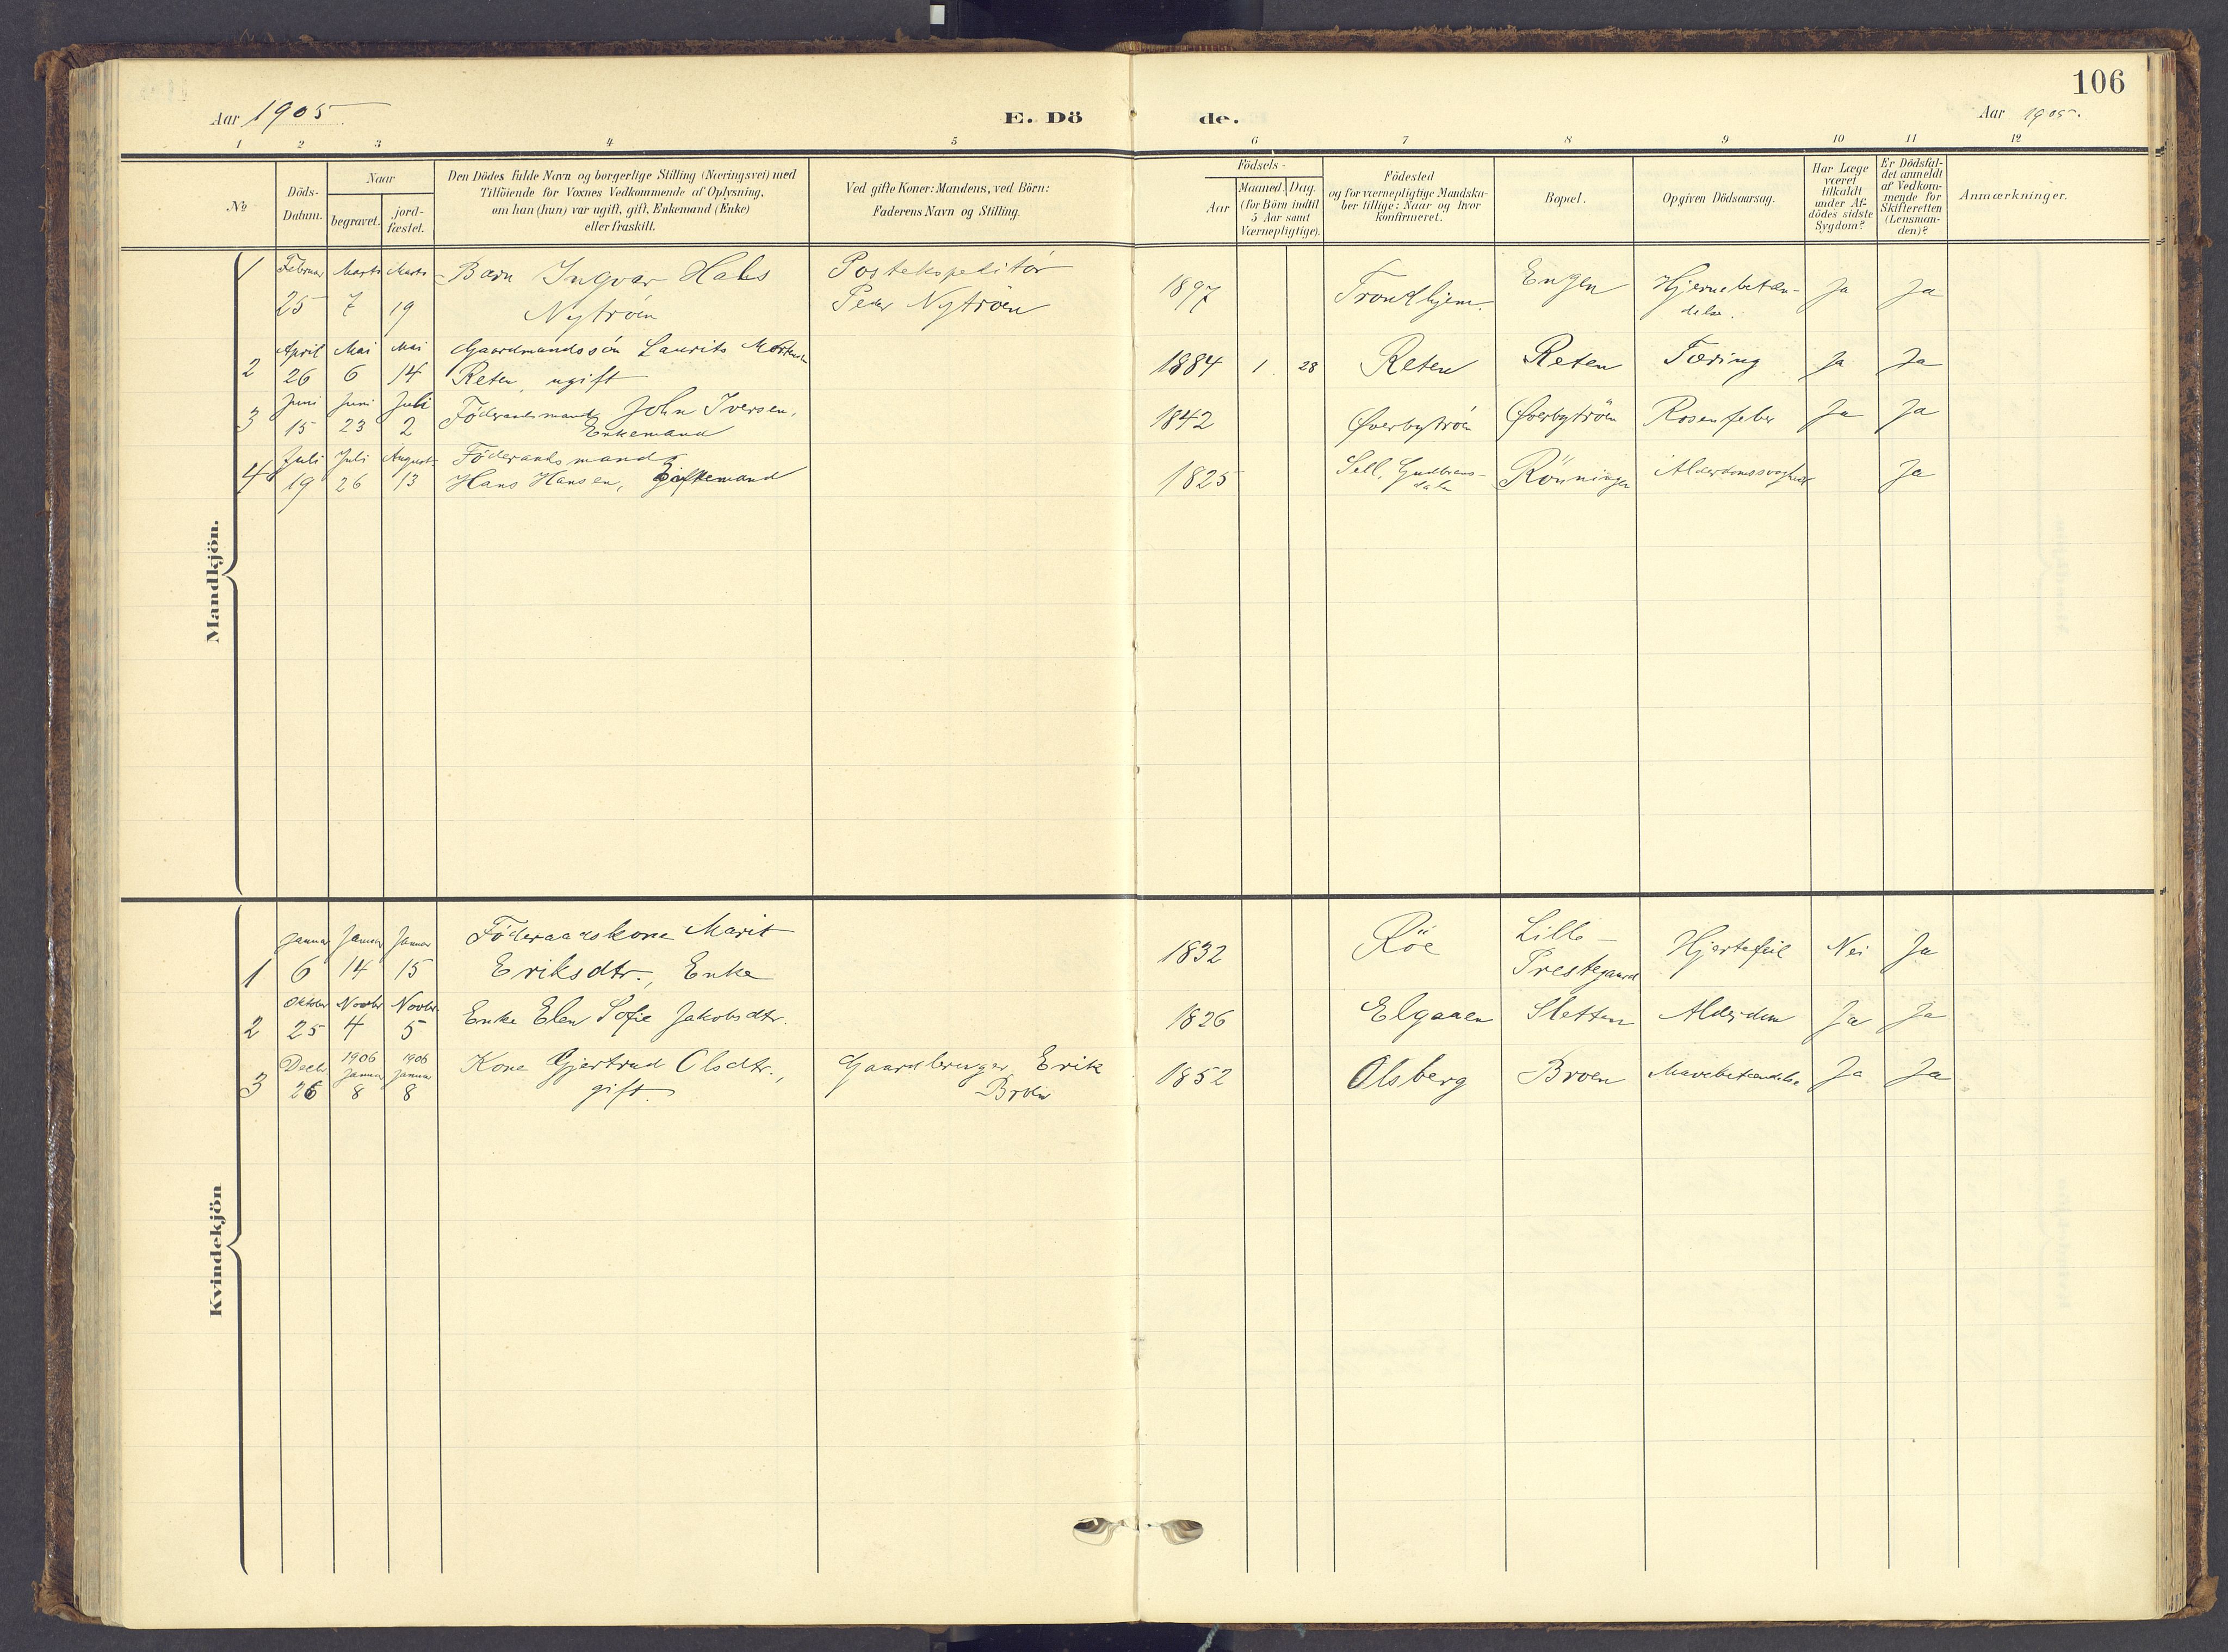 106
Aar 1905.
E. Dö
de.
Aar 1905.
1 2 3 4 5 6 7 8 9 10 11 12
No
Döds-
Datum.
Naar
begravet.
jord-
fæstet.
Den Dödes fulde Navn og borgerlige Stilling (Næringsvei) med
Tilföiende for Voxnes Vedkommende af Oplysning,
om han (hun) var ugift, gift, Enkemand (Enke)
eller fraskilt.
Ved gifte Koner: Mandens, ved Börn:
Faderens Navn og Stilling.
Födsels-
Aar
Maaned.
Dag.
(for Börn indtil
5 Aar samt
Værnepligtige).
Födested
og for værnepligtige Mandska-
ber tillige: Naar og hvor
konfirmeret.
Bopæl.
Opgiven Dödsaarsag.
Har Læge
været
tilkaldt
under Af-
dödes sidste
Sygdom?
Er Dödsfal-
det anmeldt
af Vedkom-
mende for
Skifteretten
(Lensman-
den)?
Anmærkninger.
Mandkjön.
1 Februar Marts Marts Barn Ingvar Hals Postekspeditör
25 7 19 Nytröen Peder Nytröen
1897 Trondhjem. Engen Hjernebetæn- Ja Ja
delse.
April Mai Mai Gaardmandssön Laurits Mortensen
2 26 6 14 Reten, ugift
1884 1. 28 Reten Reten Tæring Ja Ja
Juni Juni Juli Föderaadsmand John Iversen,
3 15 23 2 Enkemand
1842 Øverbytröen Øverbytröen Rosenfeber Ja Ja
Juli Juli August Föderaadsmand
4 19 26 13 Hans Hansen,
1825 Sell, Gudbrans- Rönningen Alderdomssvaghed Ja
dalen
Kvindekjön
Januar Januar Januar Föderaadskone Marit
1 6 14 15 Eriksdtr., Enke
1832 Röe Lille- Hjertefeil Nei Ja
Prestegaard
Oktober Novbr Novbr.
2 25 4 5 Enke Elen Sofie Jakobsdtr.
1826 Elgaaen Sletten Alderdom Ja Ja
1906 1906
Decbr Januar Januar Kone Gjertrud Olsdtr., Gaardbruger Erik
3 26 8 8 gift. Broen
1852 Olsberg Broen Mavebetændelse Ja Ja